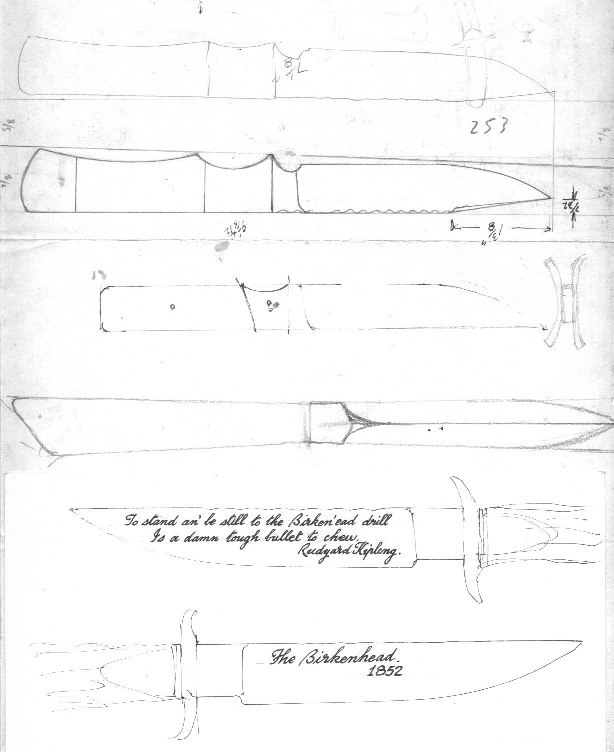 7/8
253
5/8
1 3/8"
To stand an' be still to the Birken'ead drill
Is a damn tough bullet to chew.
Rudyard Kipling.
The Birkenhead.
1852